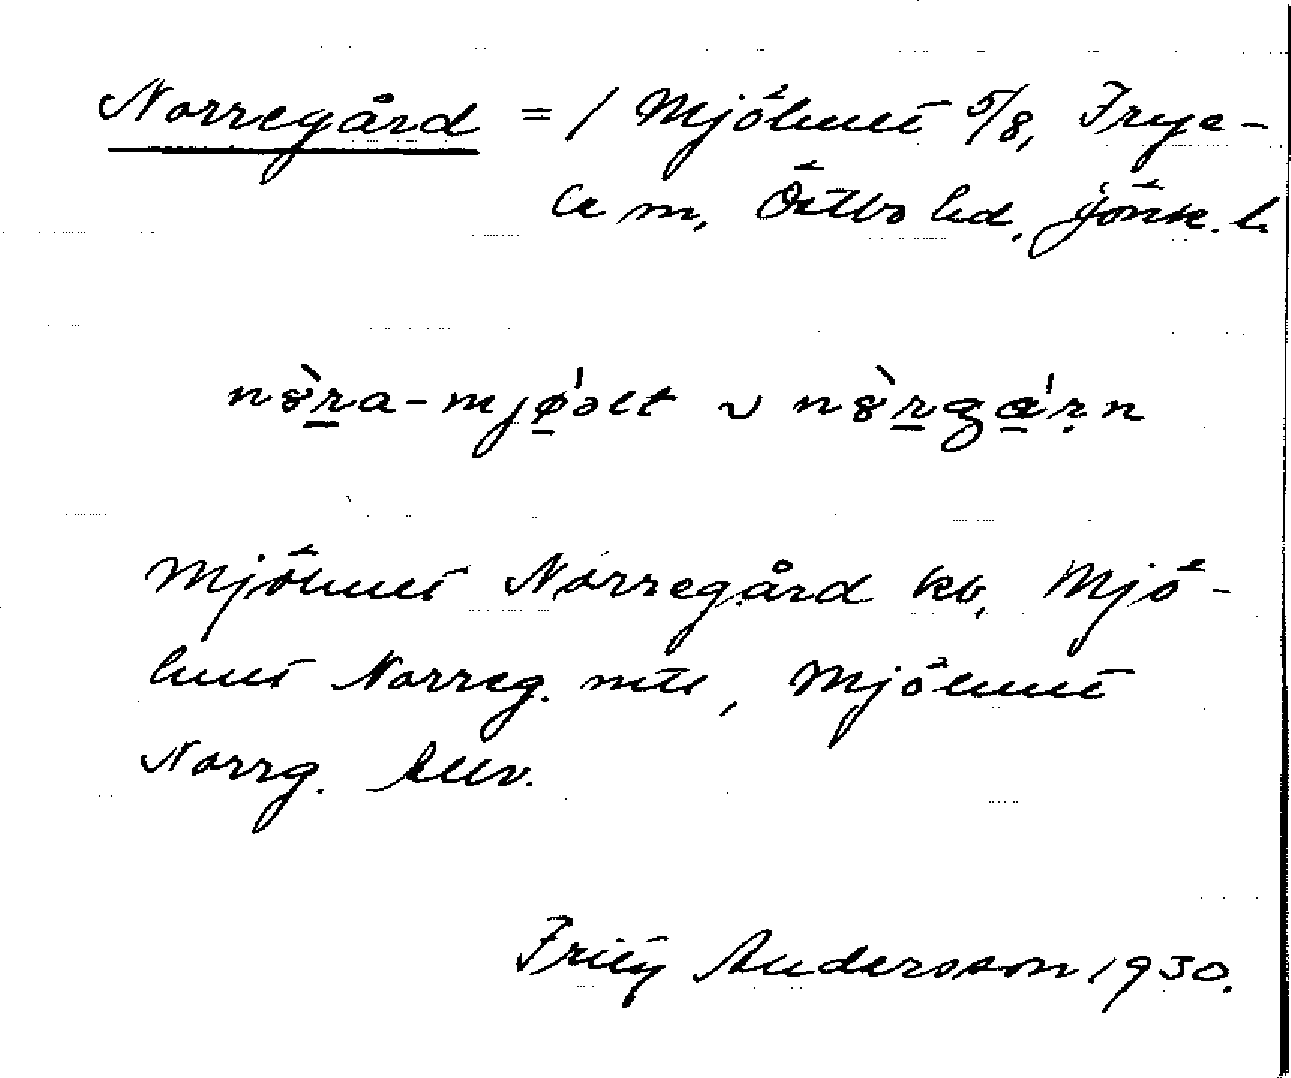 Norregård = 1 Mjöhult 5/8, Frye-
le sn, Östbo hd. Jönk. l.
nȣ̀ra-mjǿolt ~ nȣ̀rgɑ́ṛn
Mjöhult Norregård kb, Mjö-
hult Norreg. mtl, Mjöhult
Norrg. Allv.
Frity Andersson 1930.